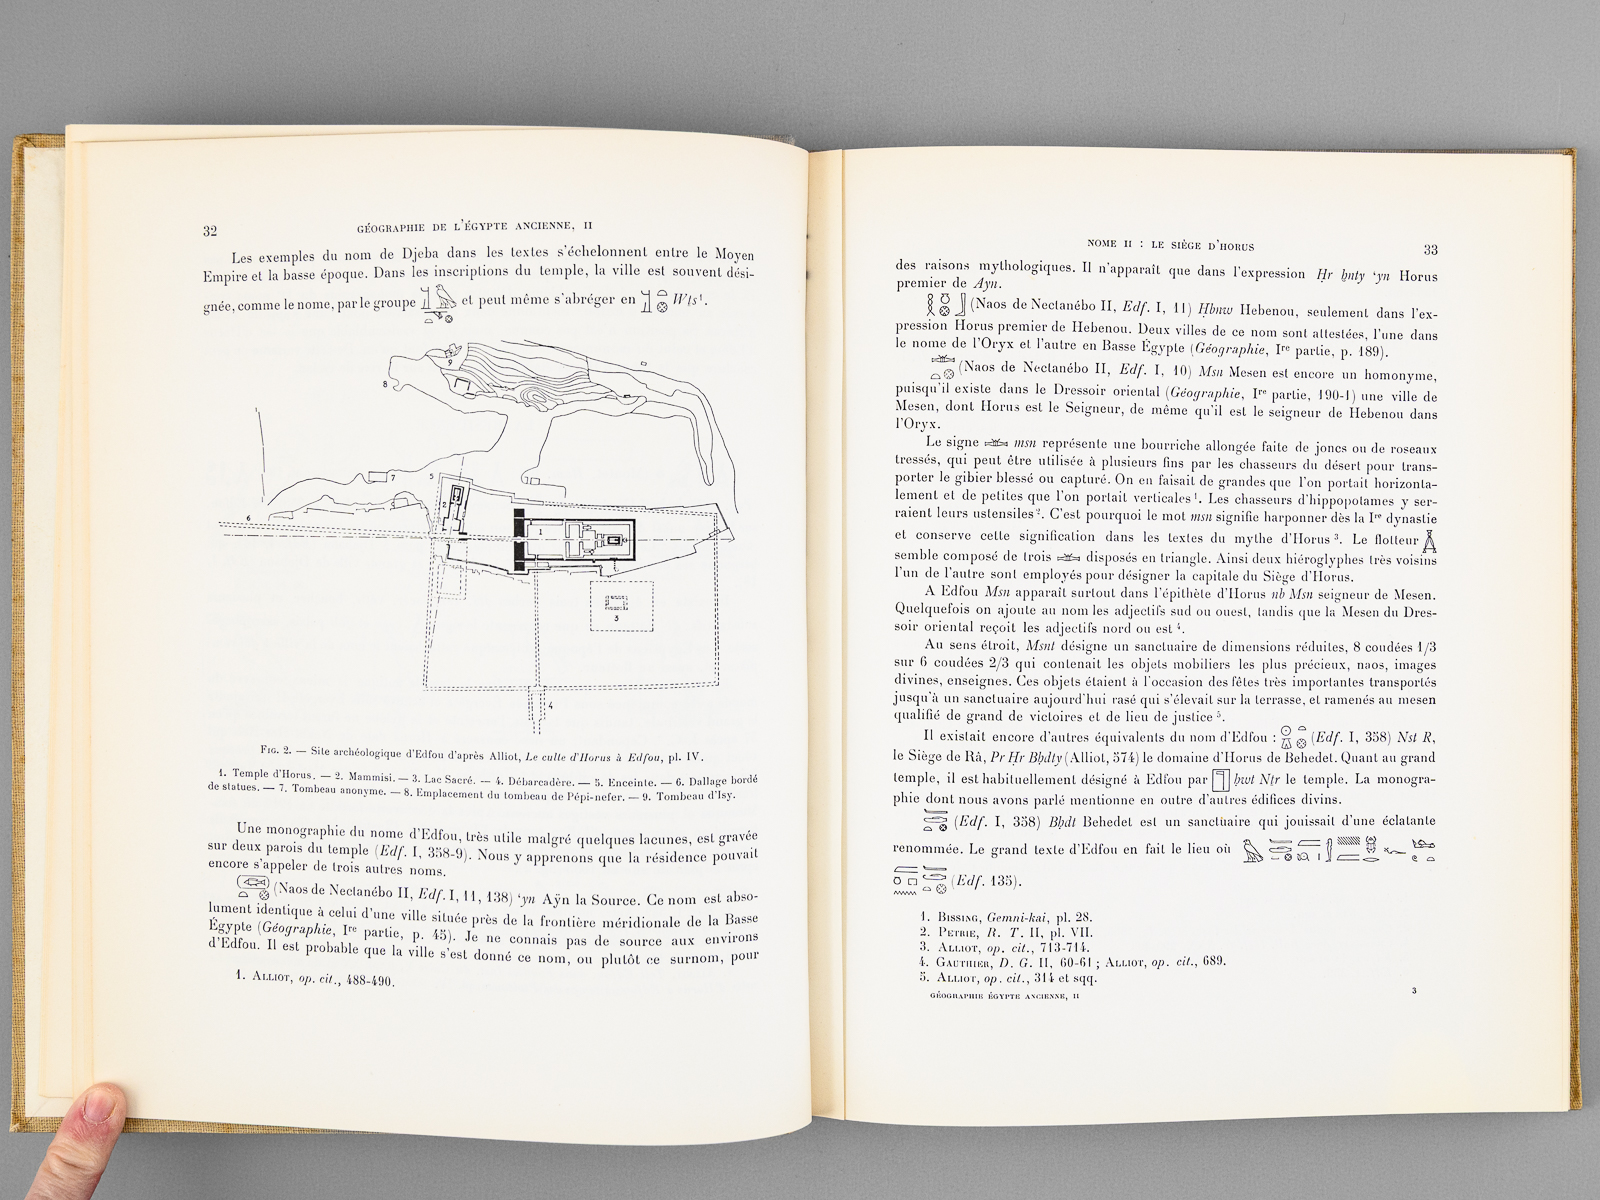 32
GÉOGRAPHIE DE L'ÉGYPTE ANCIENNE, II
Les exemples du nom de Djeba dans les textes s'échelonnent entre le Moyen
Empire et la basse époque. Dans les inscriptions du temple, la ville est souvent dési-
gnée, comme le nome, par le groupe et peut même s'abréger en Wṯs¹.
9
8
7
5
6
2
1
3
4
FIG. 2. — Site archéologique d'Edfou d'après Alliot, Le culte d'Horus à Edfou, pl. IV.
1. Temple d'Horus. — 2. Mammisi. — 3. Lac Sacré. — 4. Débarcadère. — 5. Enceinte. — 6. Dallage bordé
de statues. — 7. Tombeau anonyme. — 8. Emplacement du tombeau de Pépi-nefer. — 9. Tombeau d'Isy.
Une monographie du nome d'Edfou, très utile malgré quelques lacunes, est gravée
sur deux parois du temple (Edf. I, 358-9). Nous y apprenons que la résidence pouvait
encore s'appeler de trois autres noms.
(Naos de Nectanébo II, Edf. I, 11, 138) ʿyn Aÿn la Source. Ce nom est abso-
lument identique à celui d'une ville située près de la frontière méridionale de la Basse
Égypte (Géographie, Iʳᵉ partie, p. 45). Je ne connais pas de source aux environs
d'Edfou. Il est probable que la ville s'est donné ce nom, ou plutôt ce surnom, pour
1. ALLIOT, op. cit., 488-490.
NOME II : LE SIÈGE D'HORUS
33
des raisons mythologiques. Il n'apparaît que dans l'expression Ḥr ḫnty ʿyn Horus
premier de Ayn.
(Naos de Nectanébo II, Edf. I, 11) Ḥbnw Hebenou, seulement dans l'ex-
pression Horus premier de Hebenou. Deux villes de ce nom sont attestées, l'une dans
le nome de l'Oryx et l'autre en Basse Égypte (Géographie, Iʳᵉ partie, p. 189).
(Naos de Nectanébo II, Edf. I, 10) Msn Mesen est encore un homonyme,
puisqu'il existe dans le Dressoir oriental (Géographie, Iʳᵉ partie, 190-1) une ville de
Mesen, dont Horus est le Seigneur, de même qu'il est le seigneur de Hebenou dans
l'Oryx.
Le signe msn représente une bourriche allongée faite de joncs ou de roseaux
tressés, qui peut être utilisée à plusieurs fins par les chasseurs du désert pour trans-
porter le gibier blessé ou capturé. On en faisait de grandes que l'on portait horizonta-
lement et de petites que l'on portait verticales¹. Les chasseurs d'hippopotames y ser-
raient leurs ustensiles². C'est pourquoi le mot msn signifie harponner dès la Iʳᵉ dynastie
et conserve cette signification dans les textes du mythe d'Horus³. Le flotteur
semble composé de trois disposés en triangle. Ainsi deux hiéroglyphes très voisins
l'un de l'autre sont employés pour désigner la capitale du Siège d'Horus.
A Edfou Msn apparaît surtout dans l'épithète d'Horus nb Msn seigneur de Mesen.
Quelquefois on ajoute au nom les adjectifs sud ou ouest, tandis que la Mesen du Dres-
soir oriental reçoit les adjectifs nord ou est⁴.
Au sens étroit, Msnt désigne un sanctuaire de dimensions réduites, 8 coudées 1/3
sur 6 coudées 2/3 qui contenait les objets mobiliers les plus précieux, naos, images
divines, enseignes. Ces objets étaient à l'occasion des fêtes très importantes transportés
jusqu'à un sanctuaire aujourd'hui rasé qui s'élevait sur la terrasse, et ramenés au mesen
qualifié de grand de victoires et de lieu de justice⁵.
Il existait encore d'autres équivalents du nom d'Edfou : (Edf. I, 358) Nst R,
le Siège de Râ, Pr Ḥr Bḥdty (Alliot, 574) le domaine d'Horus de Behedet. Quant au grand
temple, il est habituellement désigné à Edfou par ḥwt Nṯr le temple. La monogra-
phie dont nous avons parlé mentionne en outre d'autres édifices divins.
(Edf. I, 358) Bḥdt Behedet est un sanctuaire qui jouissait d'une éclatante
renommée. Le grand texte d'Edfou en fait le lieu où
(Edf. 135).
1. BISSING, Gemni-kai, pl. 28.
2. PETRIE, R. T. II, pl. VII.
3. ALLIOT, op. cit., 713-714.
4. GAUTHIER, D. G. II, 60-61 ; ALLIOT, op. cit., 689.
5. ALLIOT, op. cit., 314 et sqq.
GÉOGRAPHIE ÉGYPTE ANCIENNE, II
3